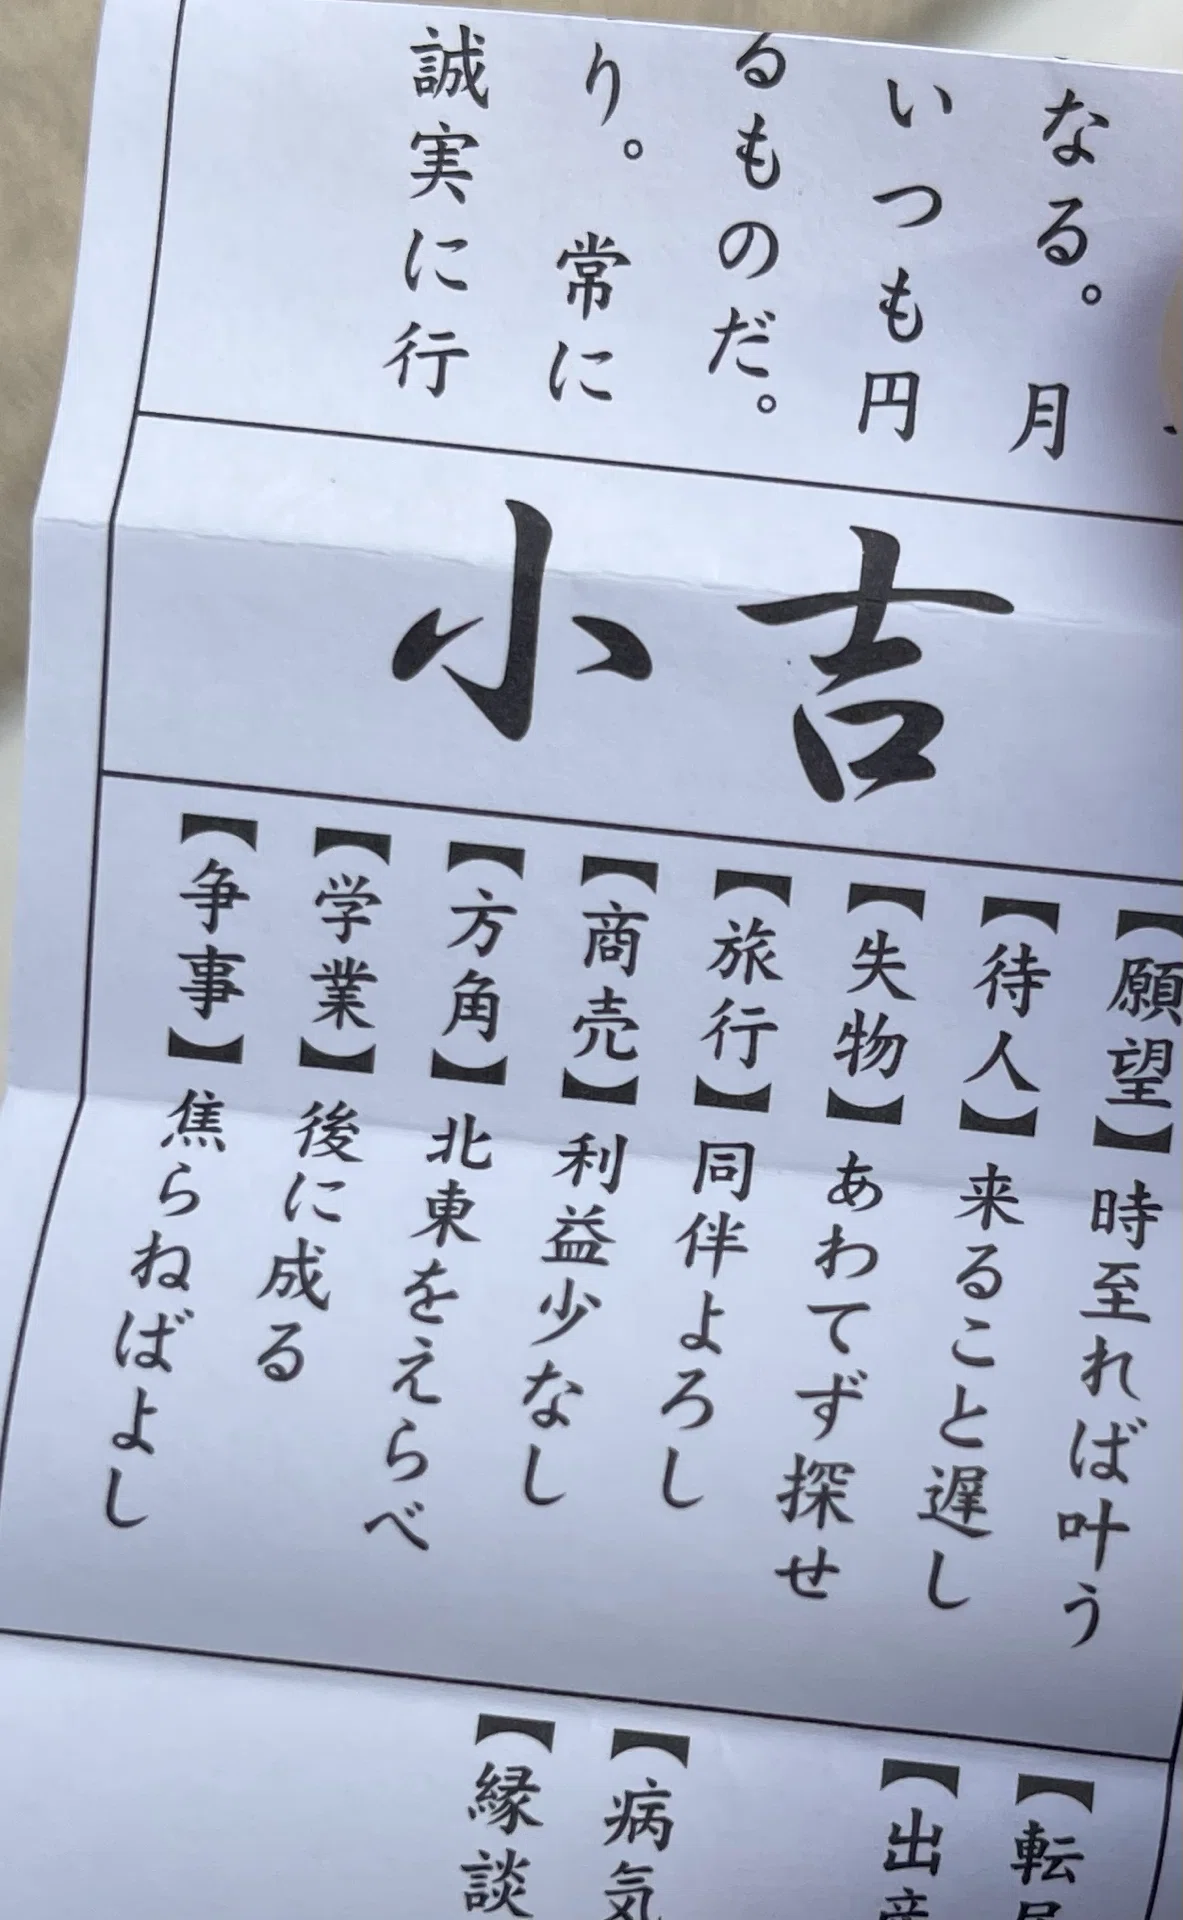 なる。　月
いつも円
るものだ。
り。　常に
誠実に行
小吉
【願望】時至れば叶う
【待人】来ること遅し
【失物】あわてず探せ
【旅行】同伴よろし
【商売】利益少なし
【方角】北東をえらべ
【学業】後に成る
【争事】焦らねばよし
【転
【出
【病気
【縁談